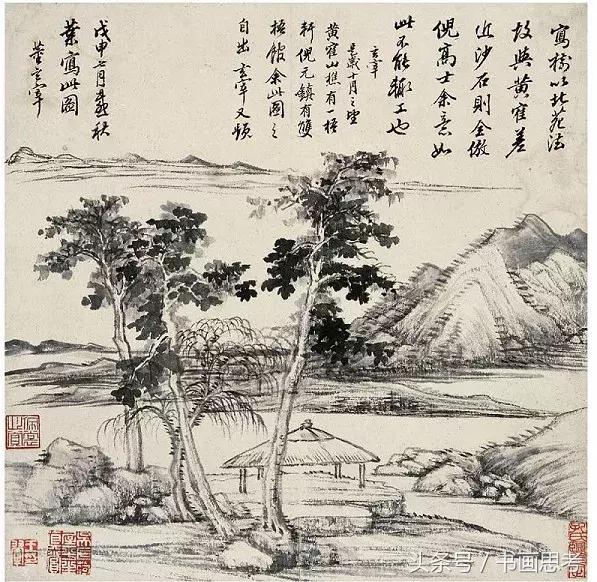 寫樹以北苑法
故與黃寉差
近沙石則全倣
倪高士余意如
此不能輙工也
玄宰
是歲十月之望
黃寉山樵有一梧
軒倪元鎮有雙
梧館余此圖之
自出玄宰又題
戊申七月秋
葉寫此圖
董玄宰
头条号 / 书画思考